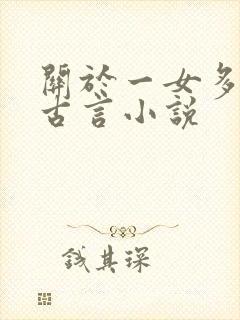 關於一女多
古言小說
錢其琛